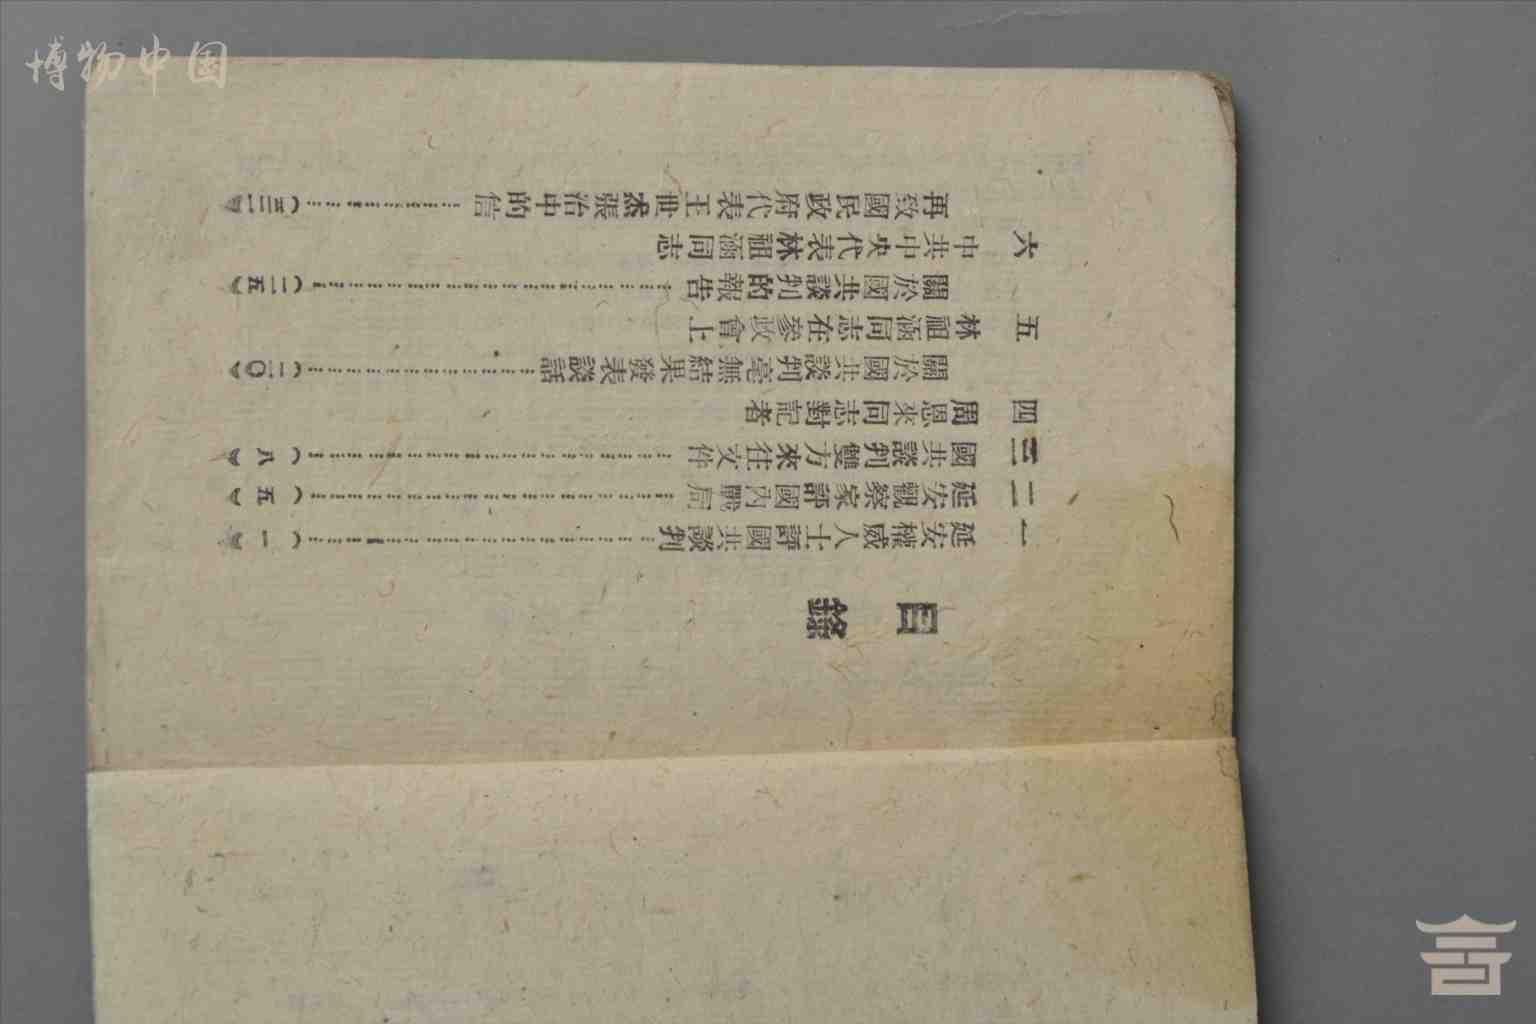 博物中国
目錄
一 延安權威人士評國共談判……………(一)
二 延安觀察家評國內戰局……………(五)
三 國共談判雙方來往文件……………(八)
四 周恩來同志對記者
關於國共談判毫無結果發表談話……………(二〇)
五 林祖涵同志在參政會上
關於國共談判的報告……………(二五)
六 中共中央代表林祖涵同志
再致國民政府代表王世杰張治中的信……………(三二)